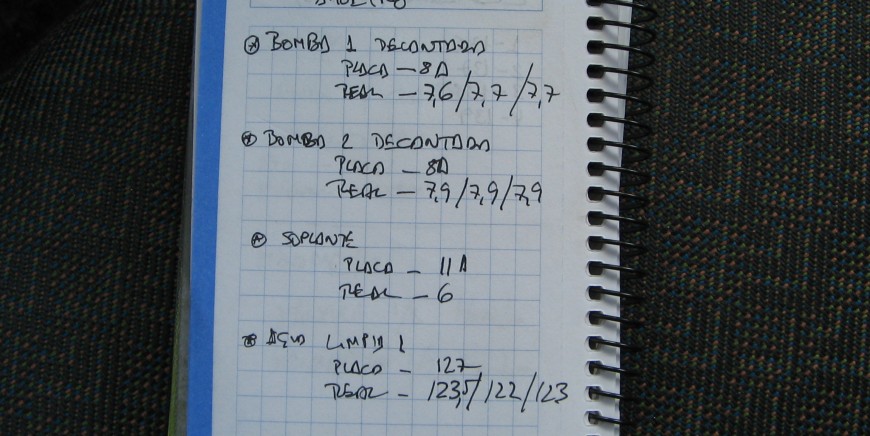 BOMBA 1 DECANTADA
PLACA - 8A
REAL - 7,6/7,7/7,7
BOMBA 2 DECANTADA
PLACA - 8A
REAL - 7,9/7,9/7,9
SOPLANTE
PLACA - 11A
REAL - 6
AGUA LIMPIA 1
PLACA - 127
REAL - 123,5/122/123